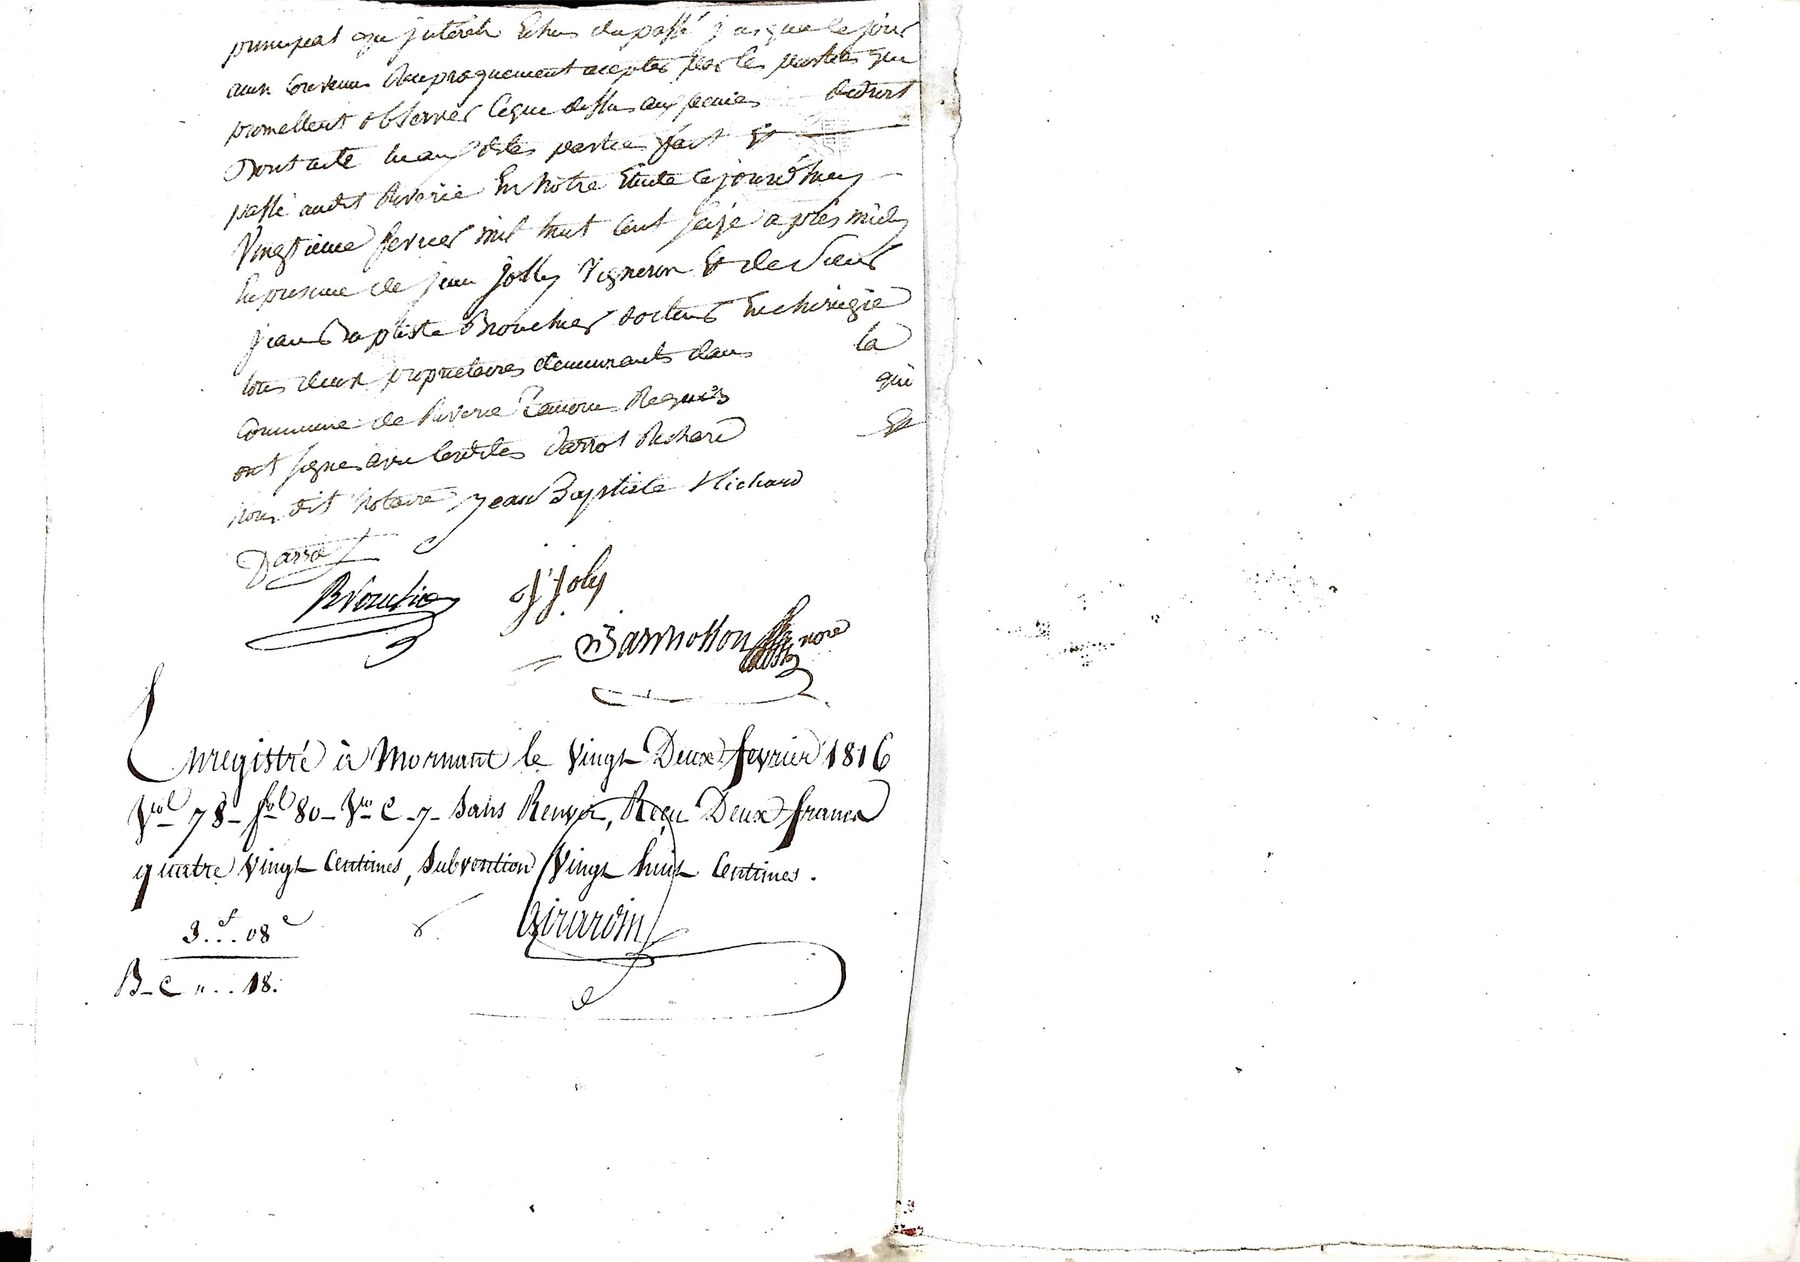 principal que interets Echus du passé jusque ce jour
ainsi convenu Réciproquement accepté par les parties qui
promettent observer ce que dessus aux peines de droit
Dont acte lu aux dites parties fait Et
passé audit Riverie En notre Etude ce jourd'huy
Vingtieme fevrier mil huit cent seize après midy
En présence de jean jolly Vigneron Et de Sieur
jean Baptiste Brouchier docteur En chirurgie
tous deux propriétaires demeurants dans la
commune de Riverie Temoins Requis qui
ont signes avec lesdites Darrot Richard Et
nous dit Notaire jean Baptiste Richard
Darrot
j joly
nore
Enregistré à Mornant le Vingt Deux fevrier 1816
Vol 78 - fol 80 - Vo C - 7 - Sans Renvoi, Reçu Deux francs
quatre Vingt Centimes, Subvention Vingt huit Centimes.
3.f..08c
Girardin
B - C ".. 18.